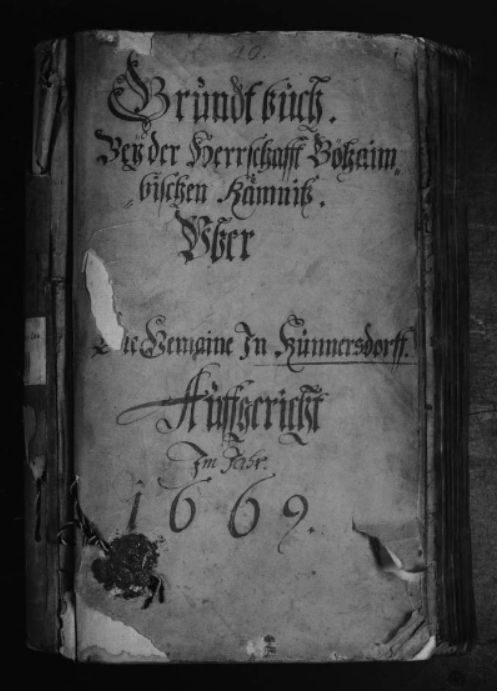 Grundtbuch.
Bey der Herrschafft Böhaim„
„bischen Kämnitz.
Vber
Die Gemaine In Künnersdorff.
Auffgericht
Im Jahr.
1669.